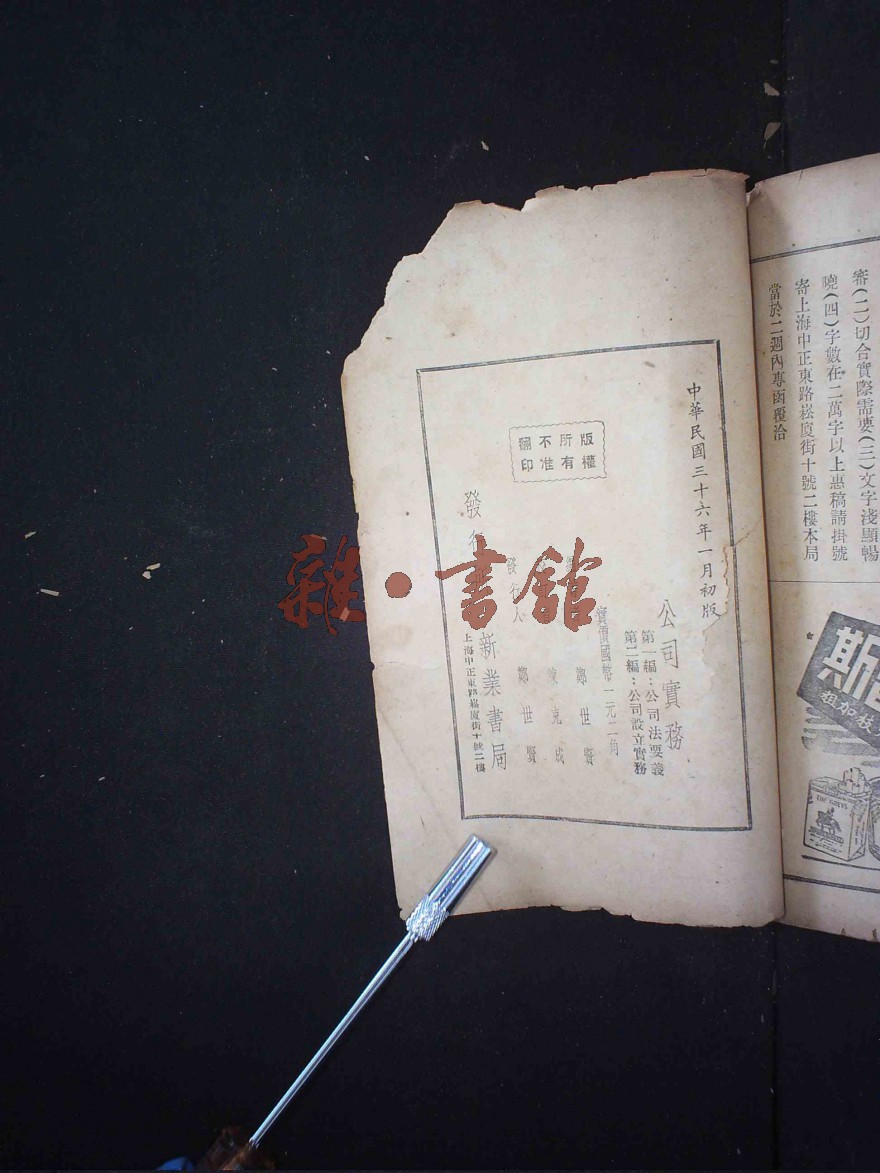 審(二)切合實際需要(三)文字淺顯暢
曉(四)字數在二萬字以上惠稿請掛號
寄上海中正東路崧廈街十號二樓本局
當於二週內專函覆洽
斯
祖加枝
中華民國三十六年一月初版
公司實務
第一編：公司法要義
第二編：公司設立實務
實價國幣一元二角
鄭世賢
克成
發行人 鄭世賢
發行
新業書局
上海中正東路崧廈街十號二樓
版權所有
不准翻印
雜·書館